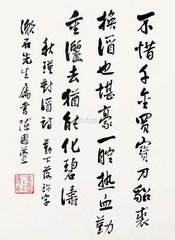 不惜千金買寶刀貂裘
換酒也堪豪一腔熱血勤
重灑去猶能化碧濤
秋瑾對酒詩 勤下落珍字
漱石先生屬書 陳